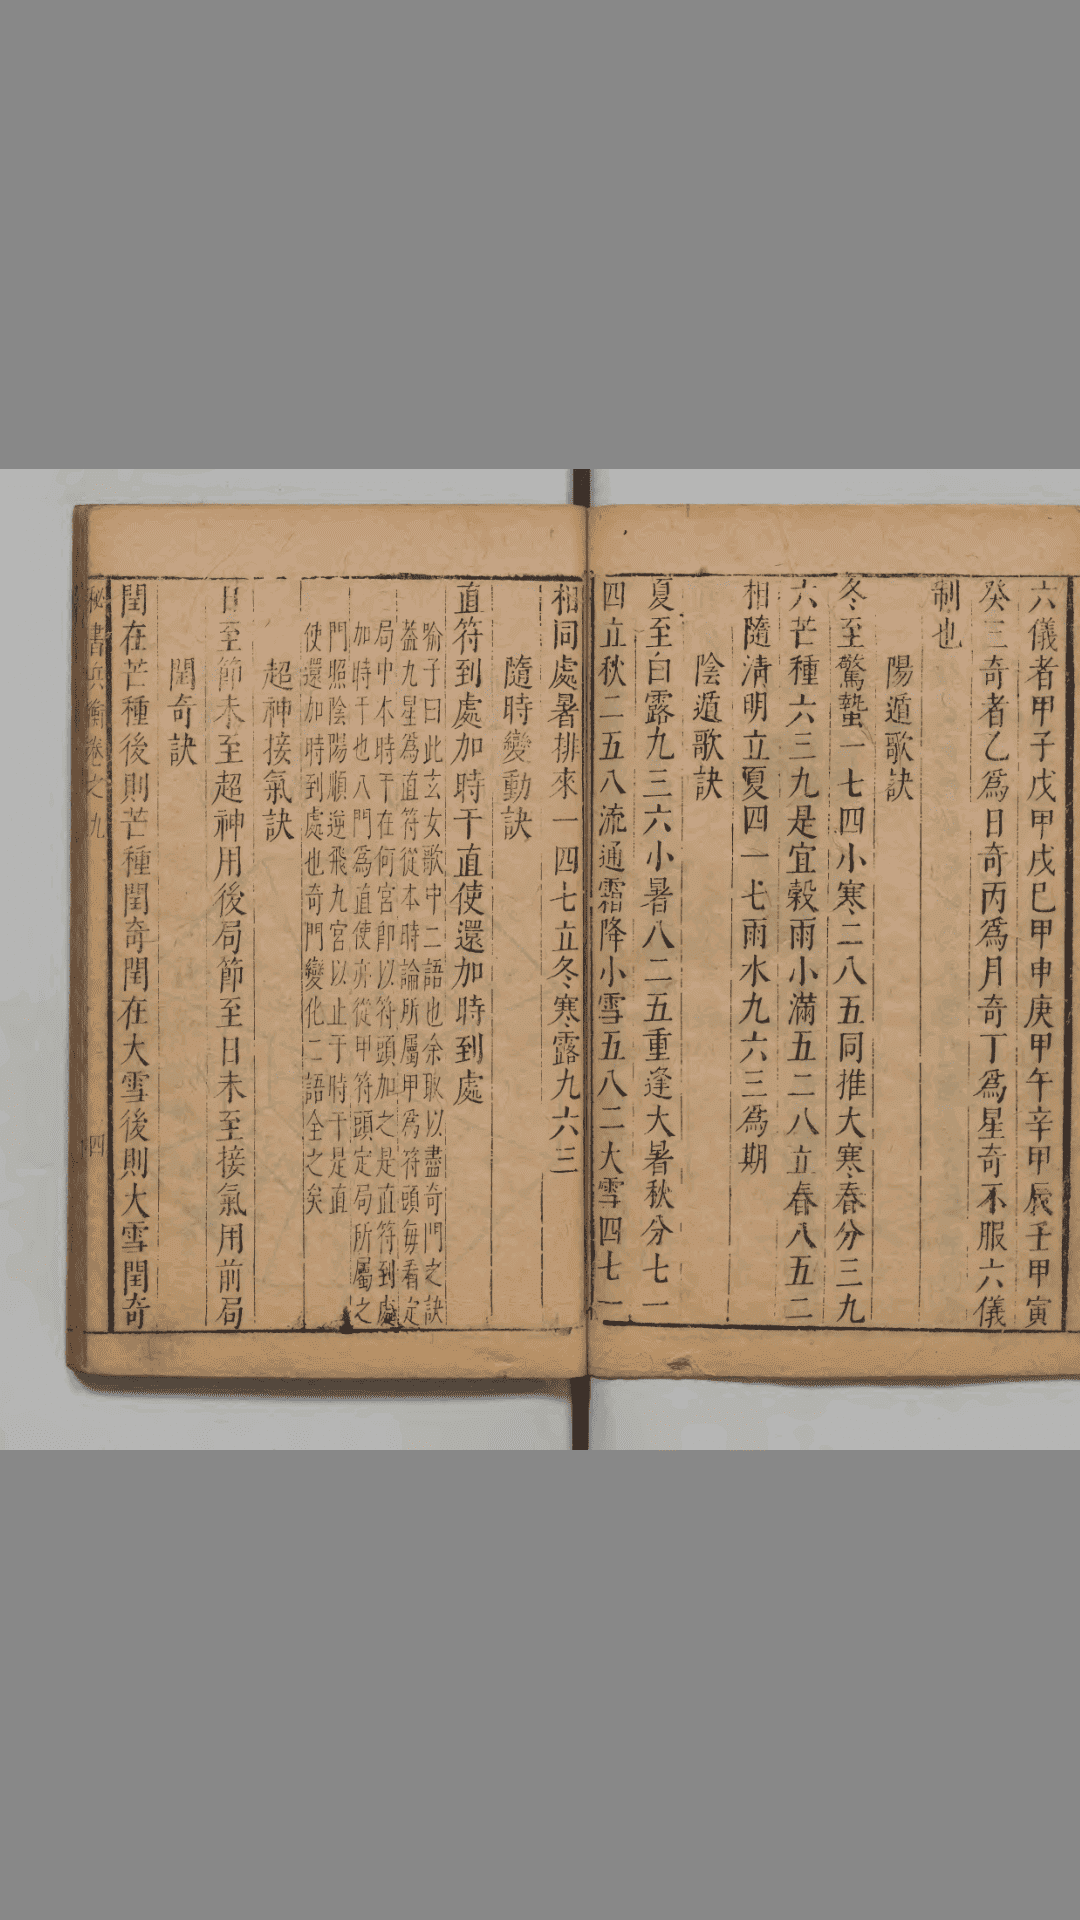 六儀者甲子戊甲戌巳甲申庚甲午辛甲辰壬甲寅
癸三奇者乙爲日奇丙爲月奇丁爲星奇不服六儀
制也
陽遁歌訣
冬至驚蟄一七四小寒二八五同推大寒春分三九
六芒種六三九是宜穀雨小滿五二八立春八五二
相隨淸明立夏四一七雨水九六三爲期
陰遁歌訣
夏至白露九三六小暑八二五重逢大暑秋分七一
四立秋二五八流通霜降小雪五八二大雪四七一
相同處暑排來一四七立冬寒露九六三
隨時變動訣
直符到處加時干直使還加時到處
喻子曰此玄女歌中二語也余取以盡奇門之訣
蓋九星爲直符從本時論所屬甲爲符頭每看定
局中本時干在何宮卽以符頭加之是直符到處
加時干也八門爲直使亦從甲符頭定局所屬之
門照陰陽順逆飛九宮以止于時干是直
使還加時到處也奇門變化二語全之矣
超神接氣訣
日至節未至超神用後局節至日未至接氣用前局
閏奇訣
閏在芒種後則芒種閏奇閏在大雪後則大雪閏奇
秘書兵衡卷之九
四